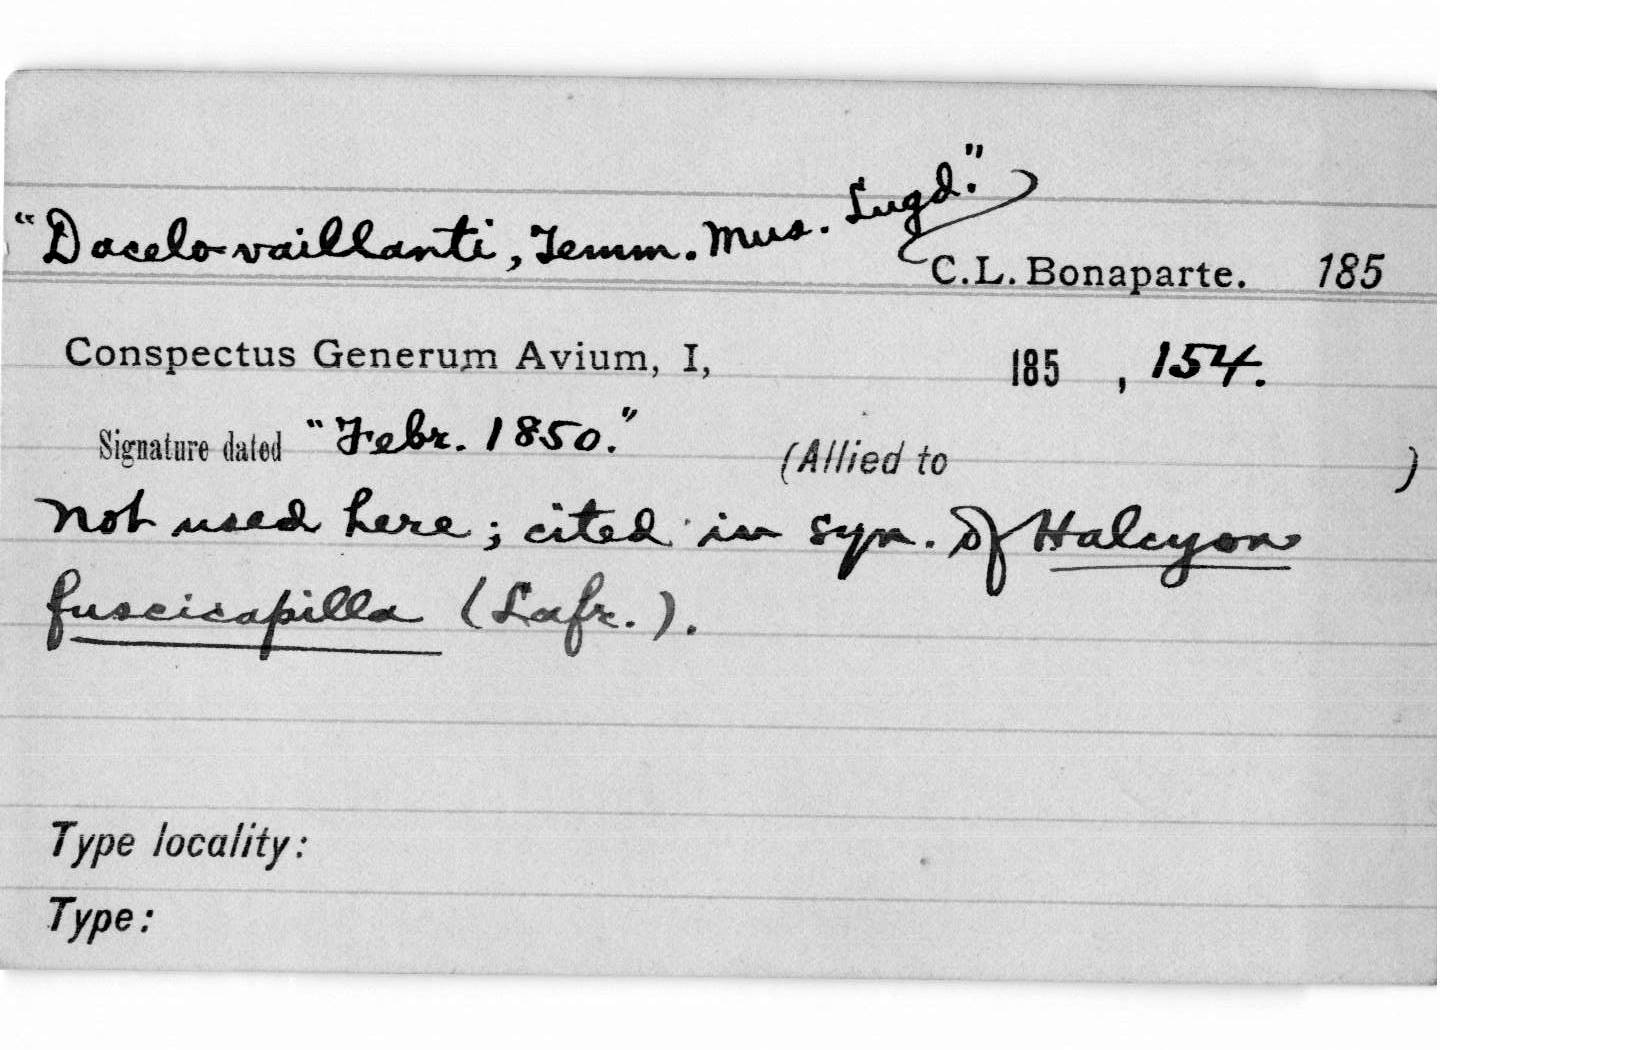 "Dacelo vaillanti, Temm. Mus. Lugd."
C.L. Bonaparte. 185
Conspectus Generum Avium, I, 185 , 154.
Signature dated "Febr. 1850." (Allied to )
Not used here; cited in syn. of Halcyon
fuscicapilla (Lafr.).
Type locality:
Type: